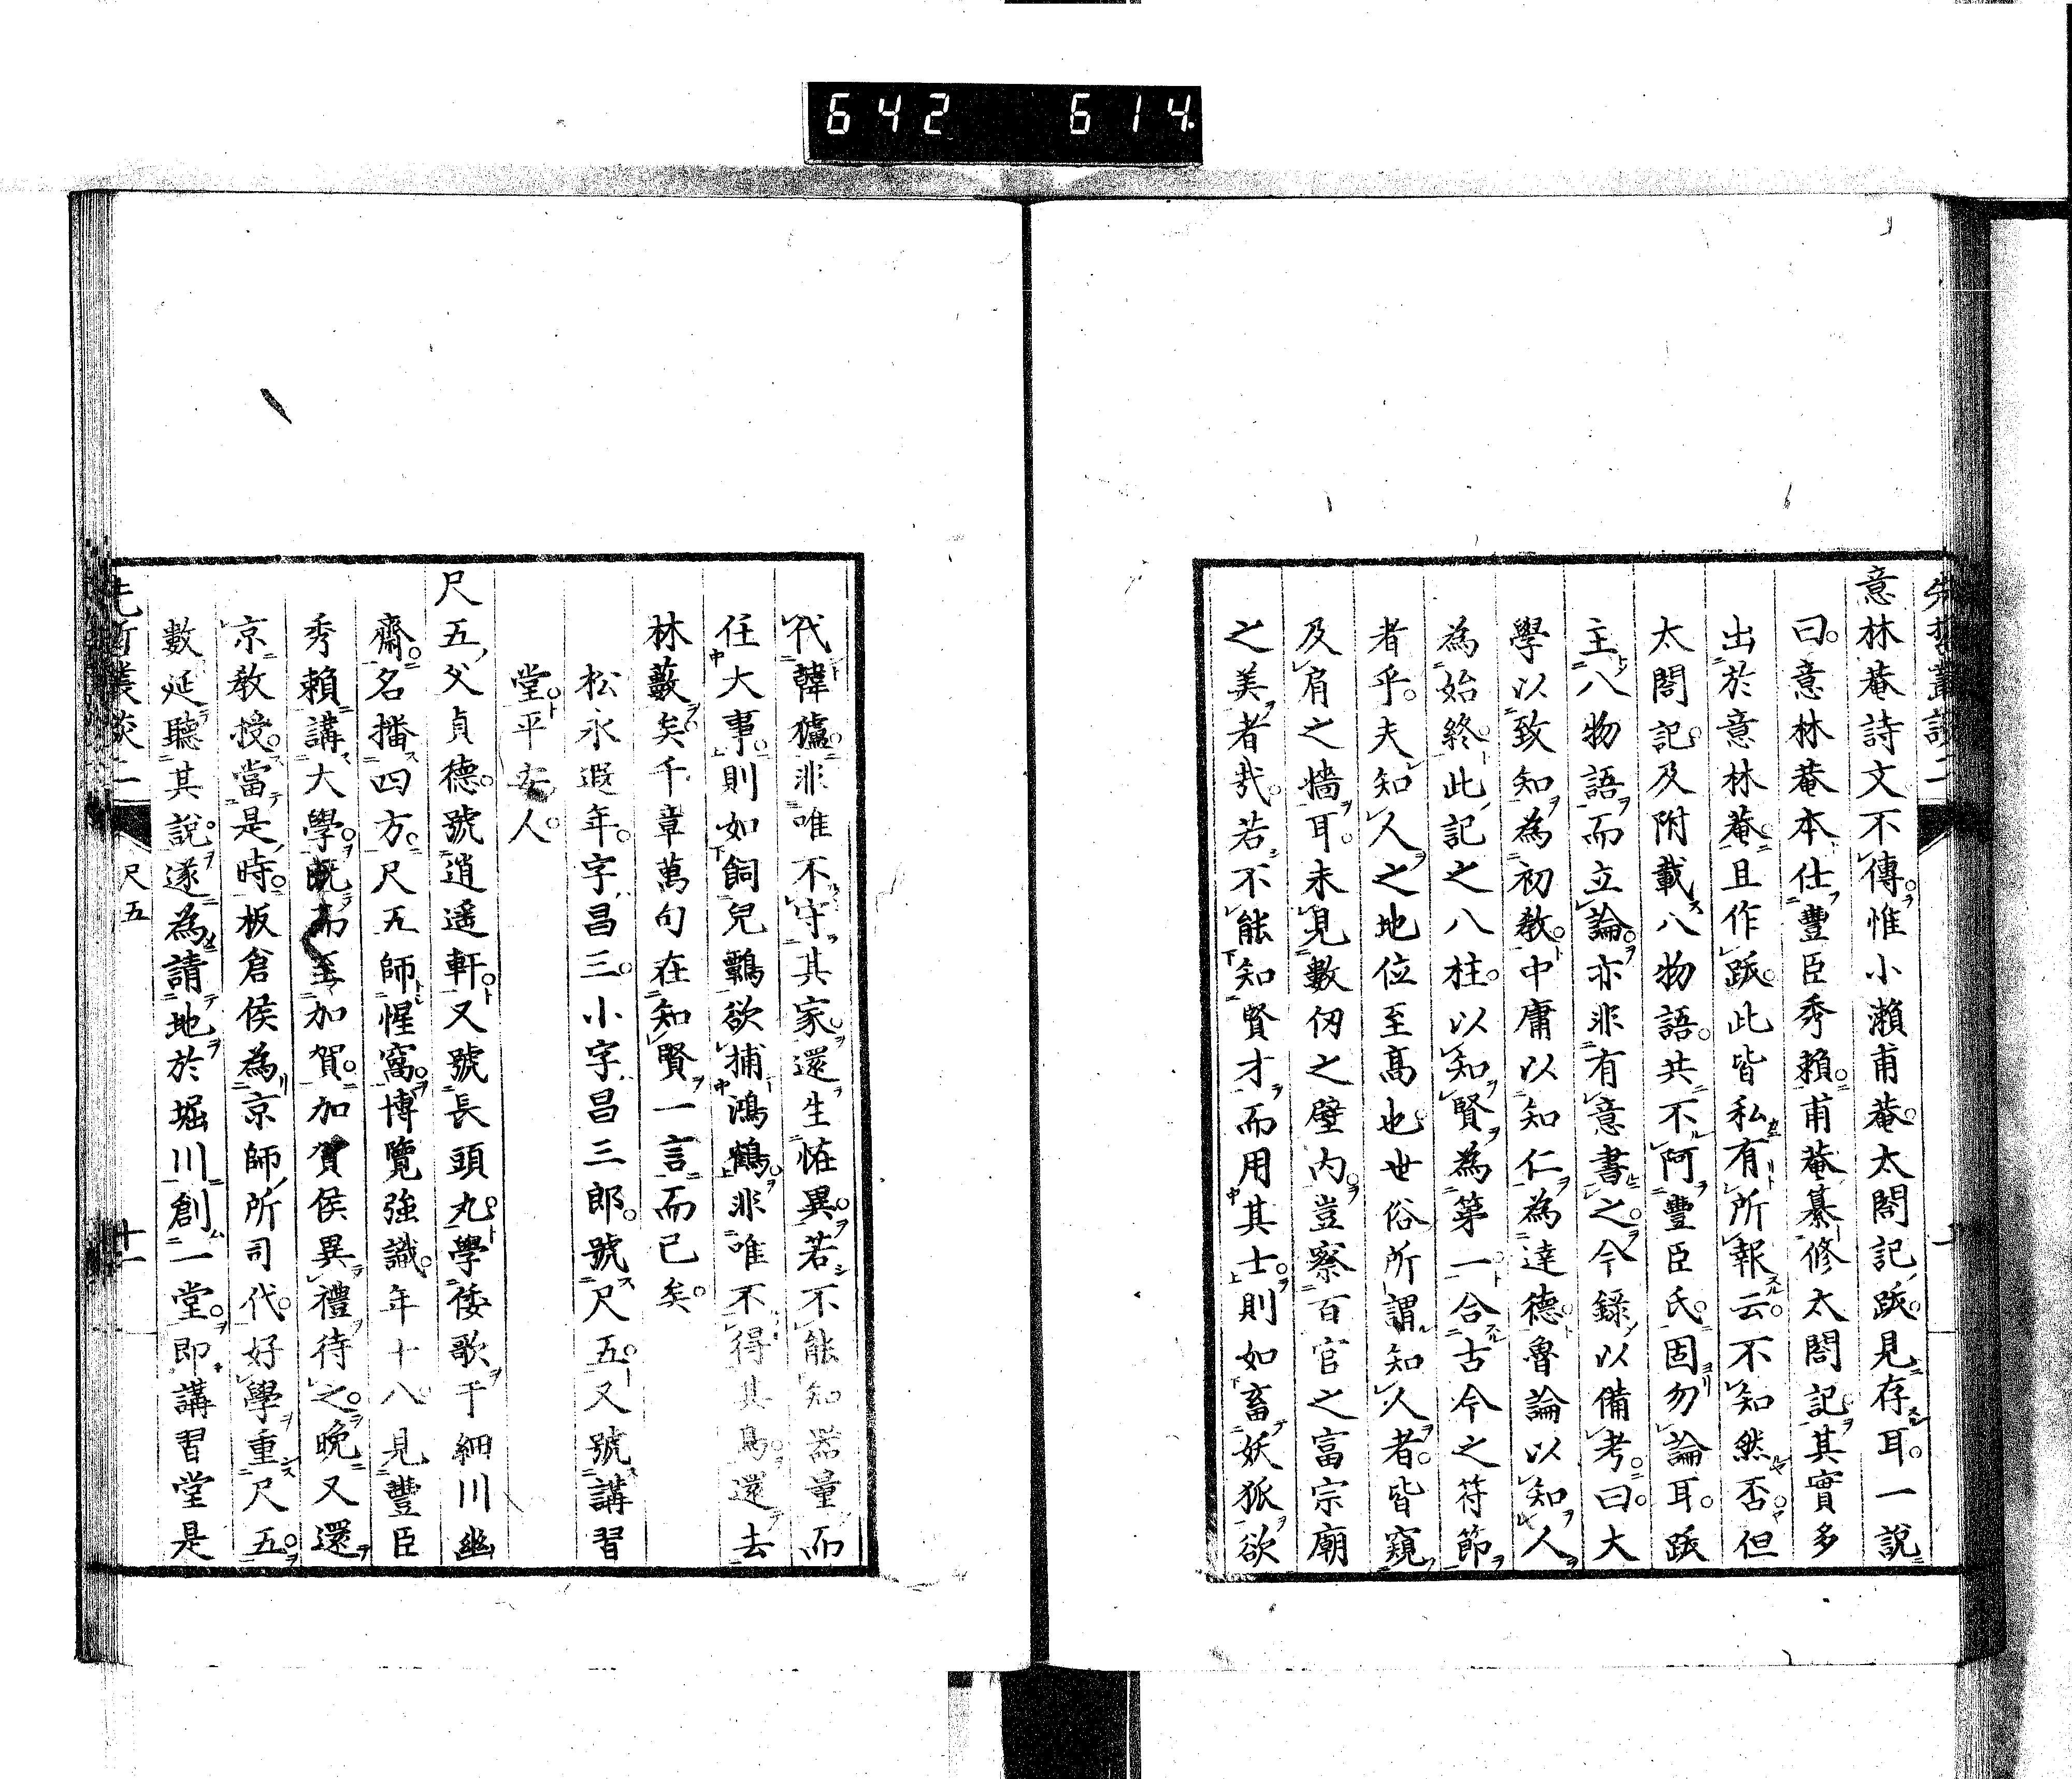 642 614
先哲叢談二
意林菴詩文不傳惟小瀨甫菴太閤記跋見存耳一說
曰意林菴本仕豐臣秀賴甫菴纂修太閤記其實多
出於意林菴且作跋此皆私有所報云不知然否但
太閤記及附載八物語共不阿豐臣氏固勿論耳跋
主八物語而立論亦非有意書之今錄以備考曰大
學以致知為初教中庸以知仁為達德魯論以知人
為始終此記之八柱以知賢為第一合古今之符節
者乎夫知人之地位至高也世俗所謂知人者皆窺
及肩之墻耳未見數仞之壁內豈察百官之富宗廟
之美者哉若不能知賢才而用其士則如畜妖狐欲
代韓獹非唯不守其家還生恠異若不能知器量而
任大事則如飼兒鸛欲捕鴻鶴非唯不得其鳥還去
林藪矣千章萬句在知賢一言而已矣
松永遐年字昌三小字昌三郎號尺五又號講習
堂平安人
尺五父貞德號逍遥軒又號長頭丸學倭歌于細川幽
齋名播四方尺五師惺窩博覽強識年十八見豐臣
秀賴講大學既而至加賀加賀侯異禮待之晚又還
京教授當是時板倉侯為京師所司代好學重尺五
數延聽其說遂為請地於堀川創一堂即講習堂是
先哲叢談二
尺五
十一